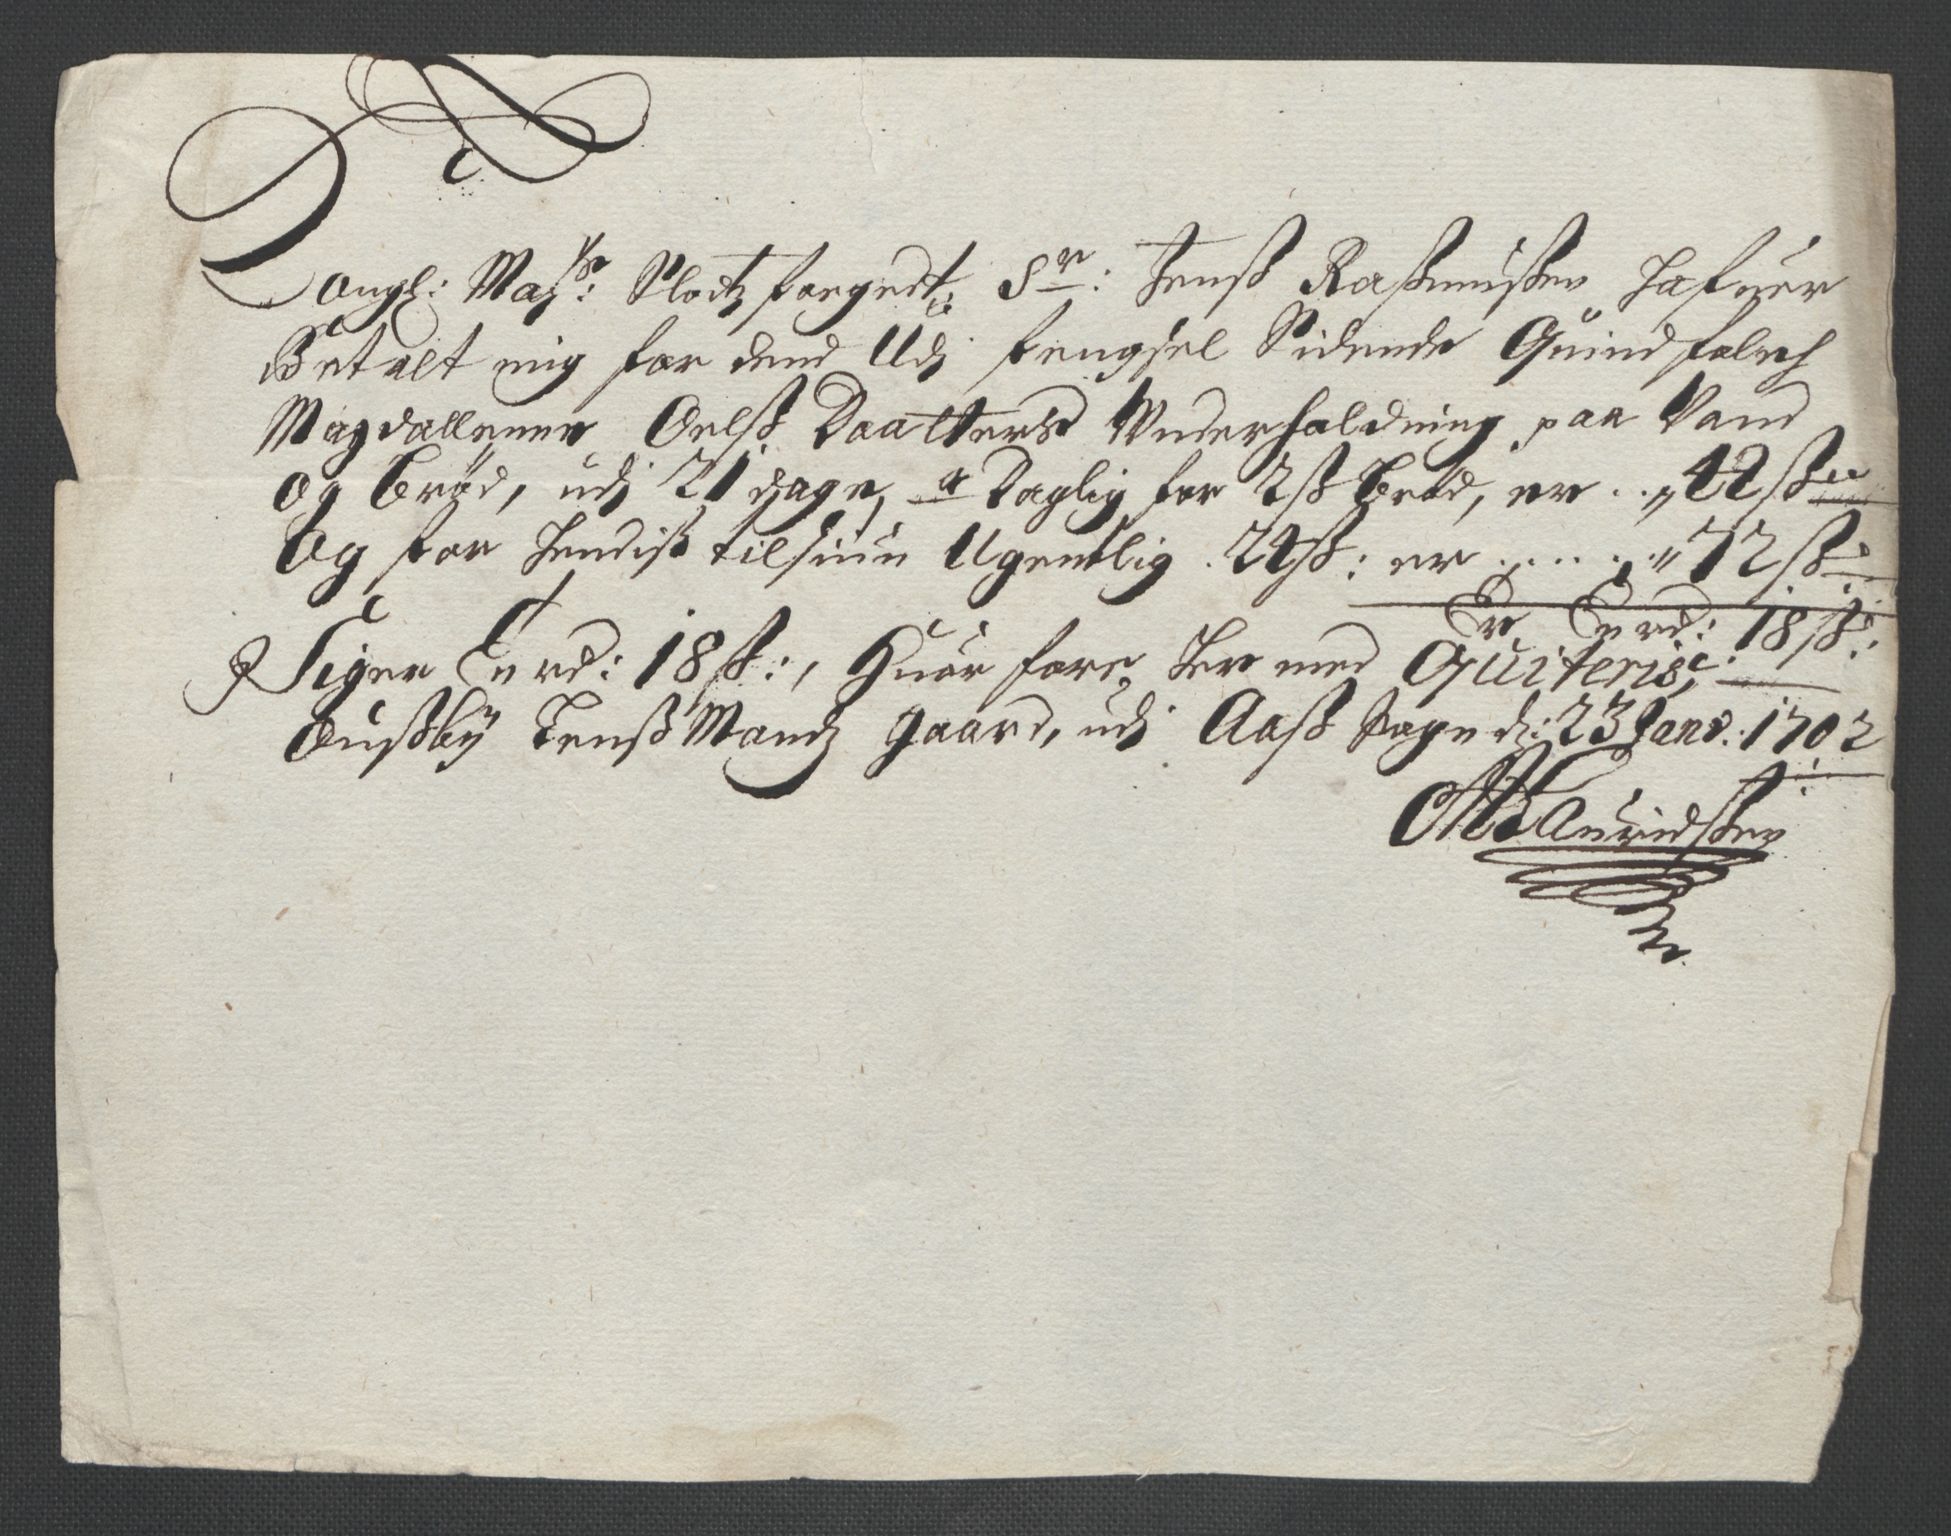 Kongl: Mayts: Slodtz forgedt: Sr: Jenß Raßmußen hafuer
Betalt mig for dend Udj fengsel Sidende Quindfolch
Magdallenne Oelß Daatters Vnderholdning paa Vand
og brød, udj 21 dage, a Daglig for 2ß brød, er .. 42ß
Og for hendiß tilsiun Ugentlig . 24ß: er . . . . . 72ß
Er En rd: 18ß:
Siger En rd: 18ß:, Huor fore her med Quiteris:
Jenß gaard, udj Aaß Sogn d: 23 Janv: 1702
Lauridßen